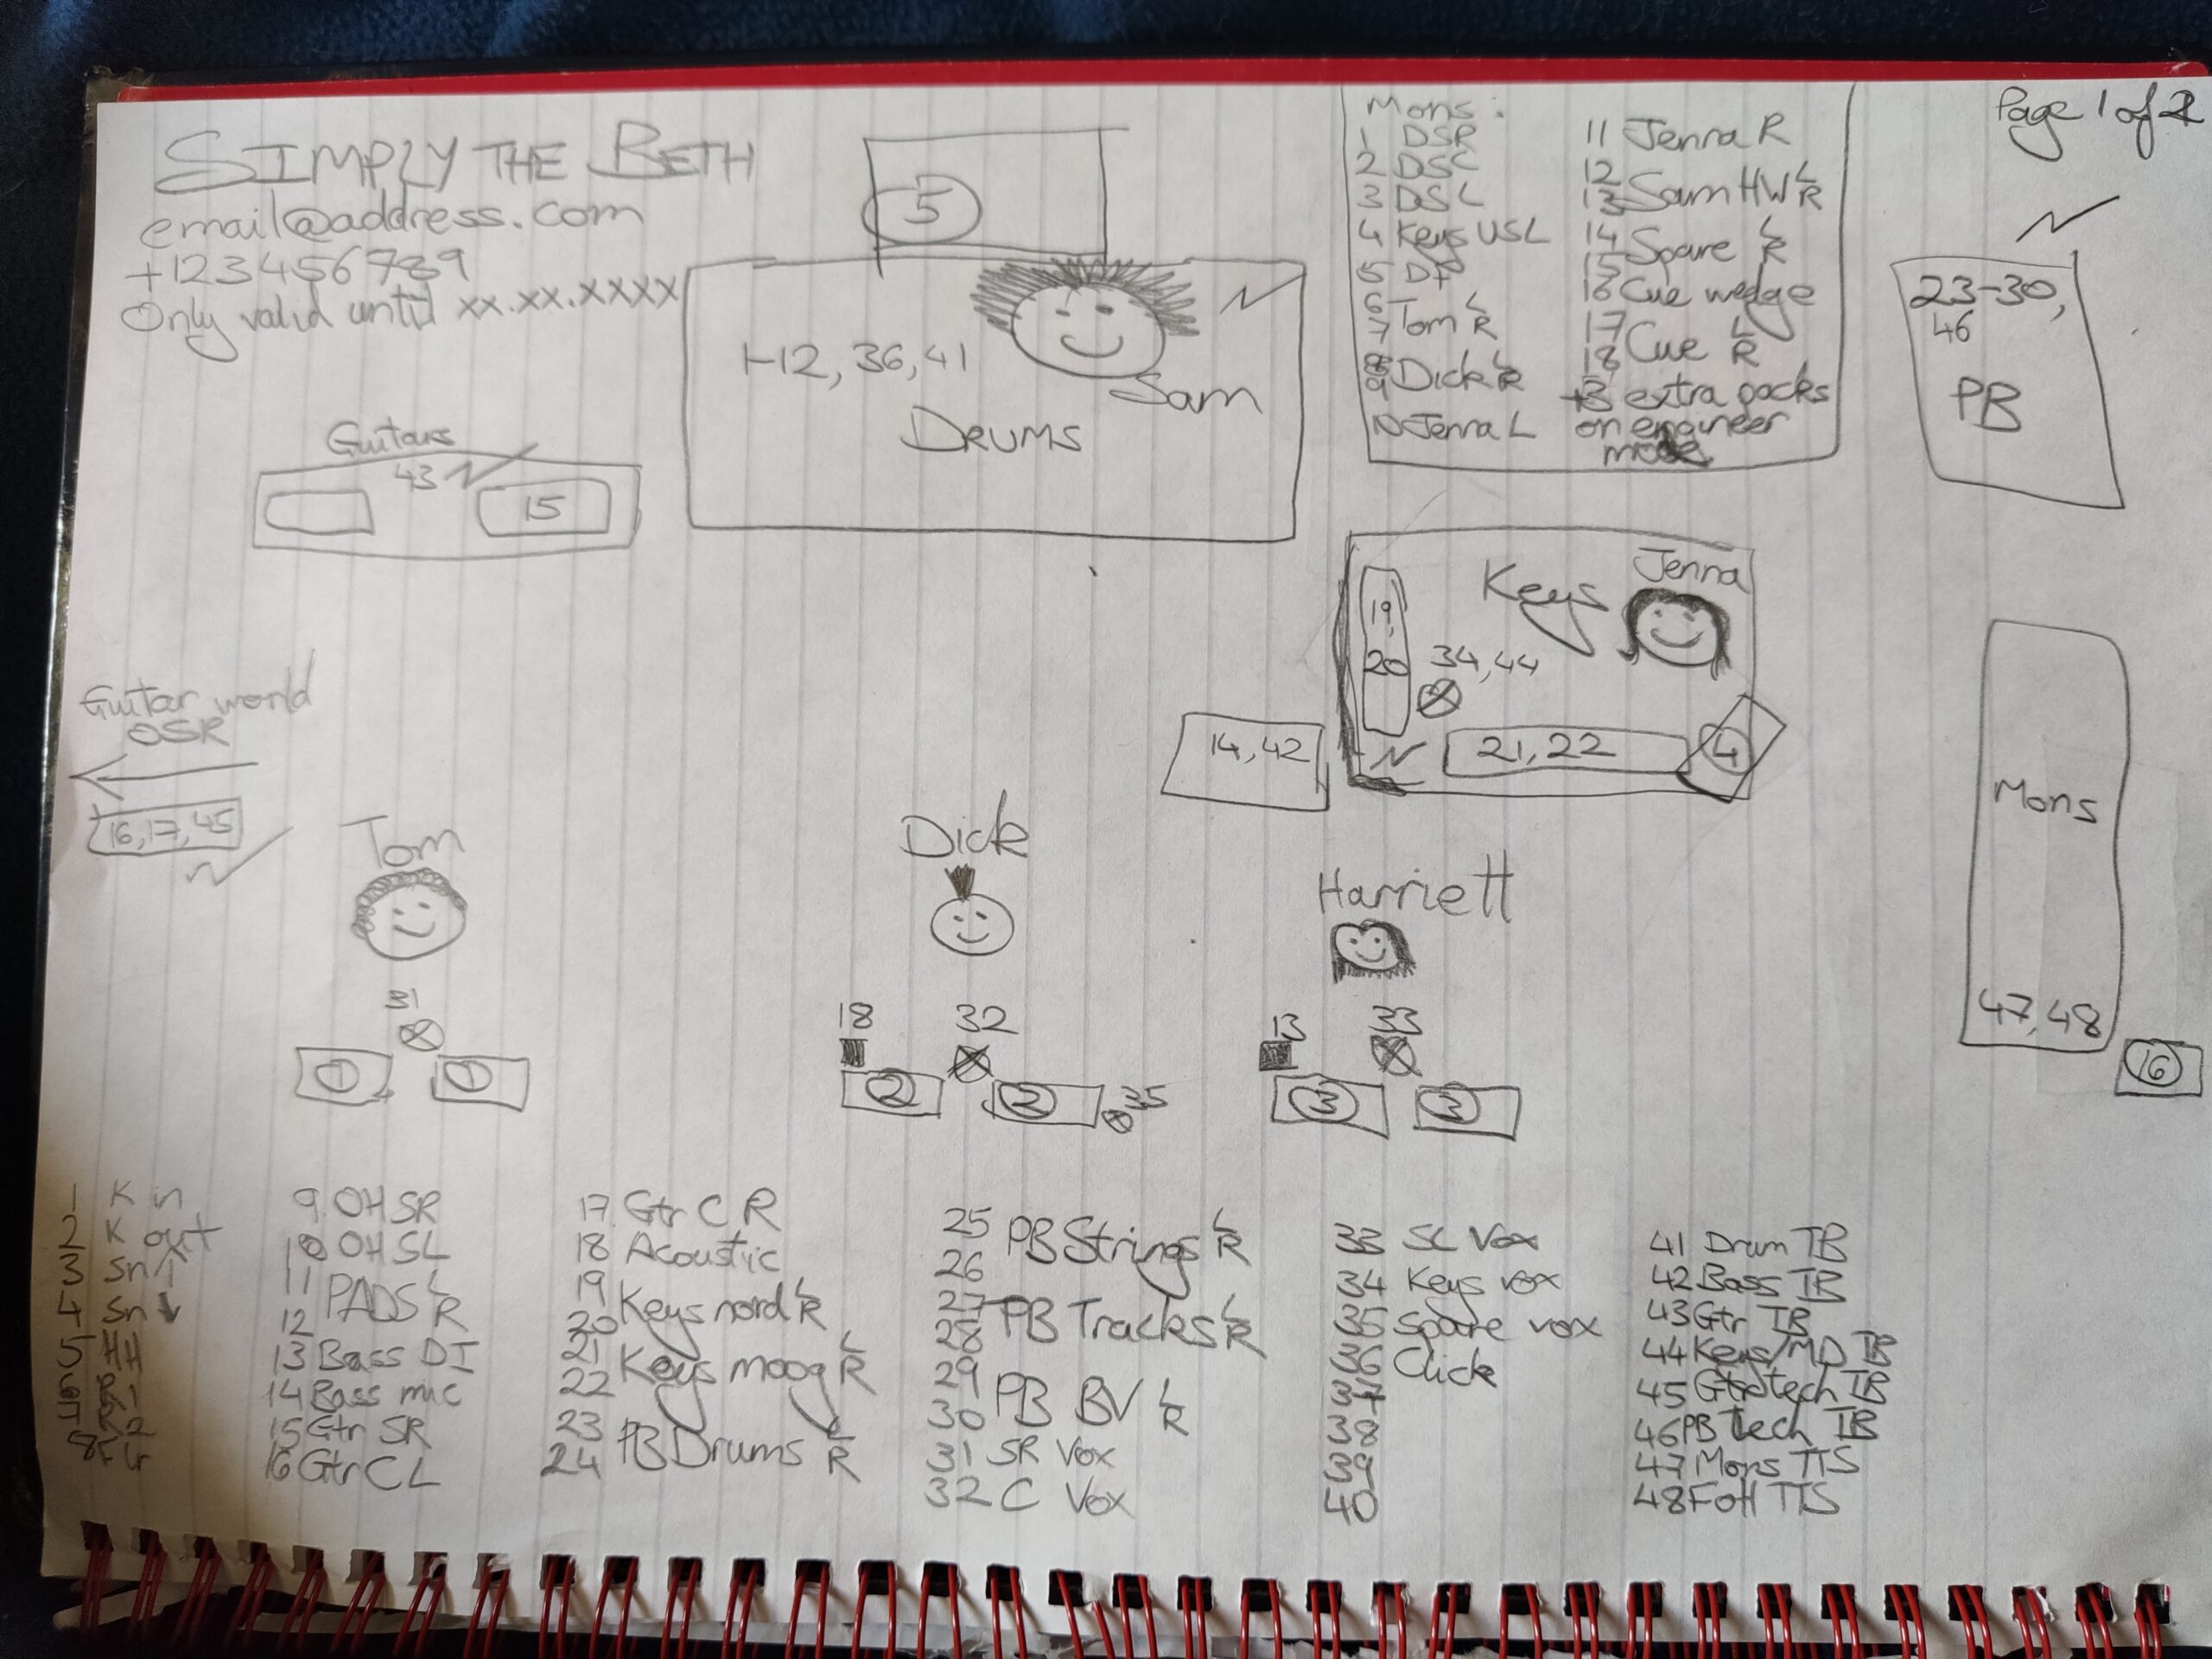 SIMPLY THE BETH
email@address.com
+123456789
Only valid until xx.xx.xxxx
Page 1 of 2
5
Mons:
1 DSR
2 DSC
3 DSL
4 Keys USL
5 DF
6 Tom L
7 R
8 Dick L
9 R
10 Jenna L
11 Jenna R
12 Sam HW L
13 R
14 Spare L
15 R
16 Cue wedge
17 Cue L
18 R
+3 extra packs
on engineer
mode
23-30,
46
PB
1-12, 36, 41
Sam
DRUMS
Guitars
43
15
Keys
Jenna
19,
20
34,44
21,22
4
14,42
Guitar world
OSR
16,17,45
Mons
47,48
16
Tom
31
1
1
Dick
18
32
2
2
35
Harriett
13
33
3
3
1 K in
2 K out
3 Sn ↑
4 Sn ↓
5 HH
6 R1
7 R2
8 F4
9 OH SR
10 OH SL
11 PADS L
12 R
13 Bass DI
14 Bass mic
15 Gtr SR
16 Gtr C L
17 Gtr C R
18 Acoustic
19 Keys nord L
20 R
21 Keys moog L
22 R
23 PB Drums L
24 R
25 PB Strings L
26 R
27 PB Tracks L
28 R
29 PB BV L
30 R
31 SR Vox
32 C Vox
33 SL Vox
34 Keys vox
35 Spare vox
36 Click
37
38
39
40
41 Drum TB
42 Bass TB
43 Gtr TB
44 Keys/MD TB
45 Gtr tech TB
46 PB tech TB
47 Mons TTS
48 FOH TTS